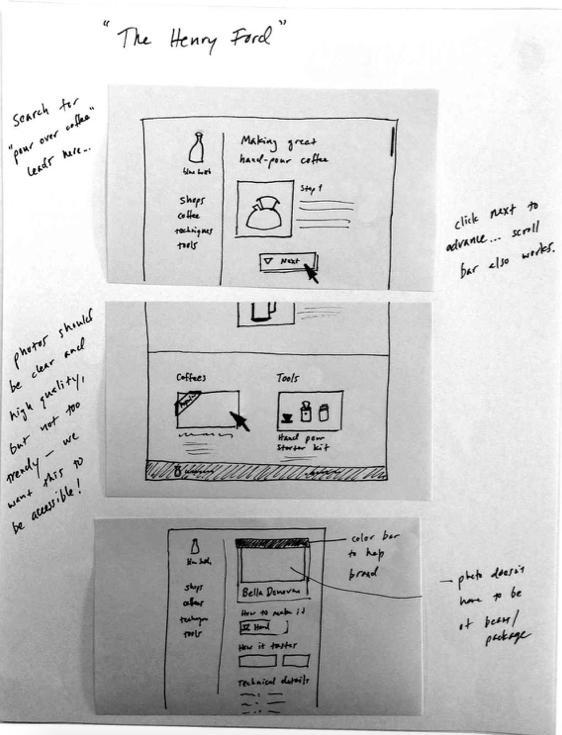 "The Henry Ford"
Search for
"pour over coffee"
leads here...
blue bottle
shops
coffee
techniques
tools
Making great
hand-pour coffee
Step 1
Next
click next to
advance... scroll
bar also works.
photos should
be clear and
high quality,
but not too
trendy — we
want this to
be accessible!
Coffees
Popular
Tools
Hand pour
Starter kit
shops
coffees
techques
tools
Bella Donovan
How to make it
Hand
How it tastes
Technical details
color bar
to help
brand
— photo doesn't
have to be
of beans/
package